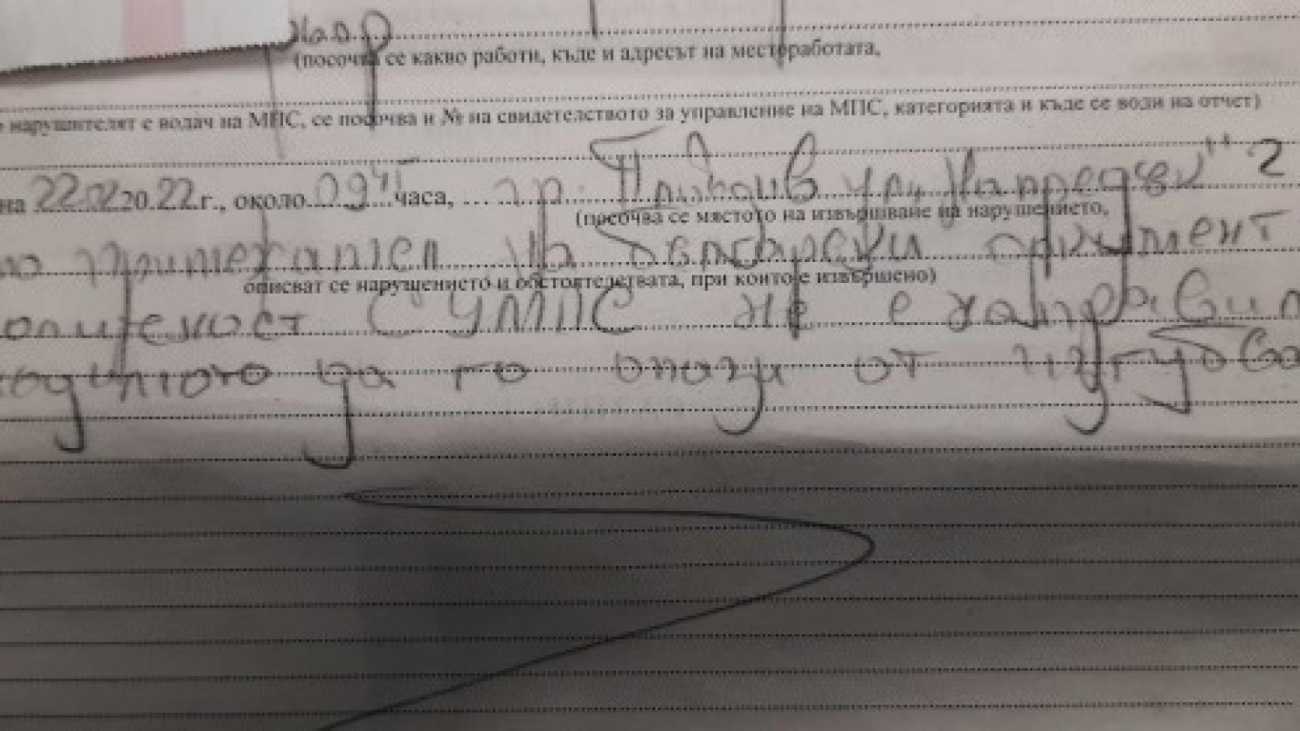 (посочва се какво работи, къде и адресът на местоработата,
нарушителят е водач на МПС, се посочва и № на свидетелството за управление на МПС, категорията и къде се води на отчет)
на 22.02.2022 г., около 09 45 часа, гр. Пловдив ул. "Напредък" 2
(посочва се мястото на извършване на нарушението,
притежател на български документ
описват се нарушението и обстоятелствата, при които е извършено)
СУМПС не е направил
да го опази от изгубва